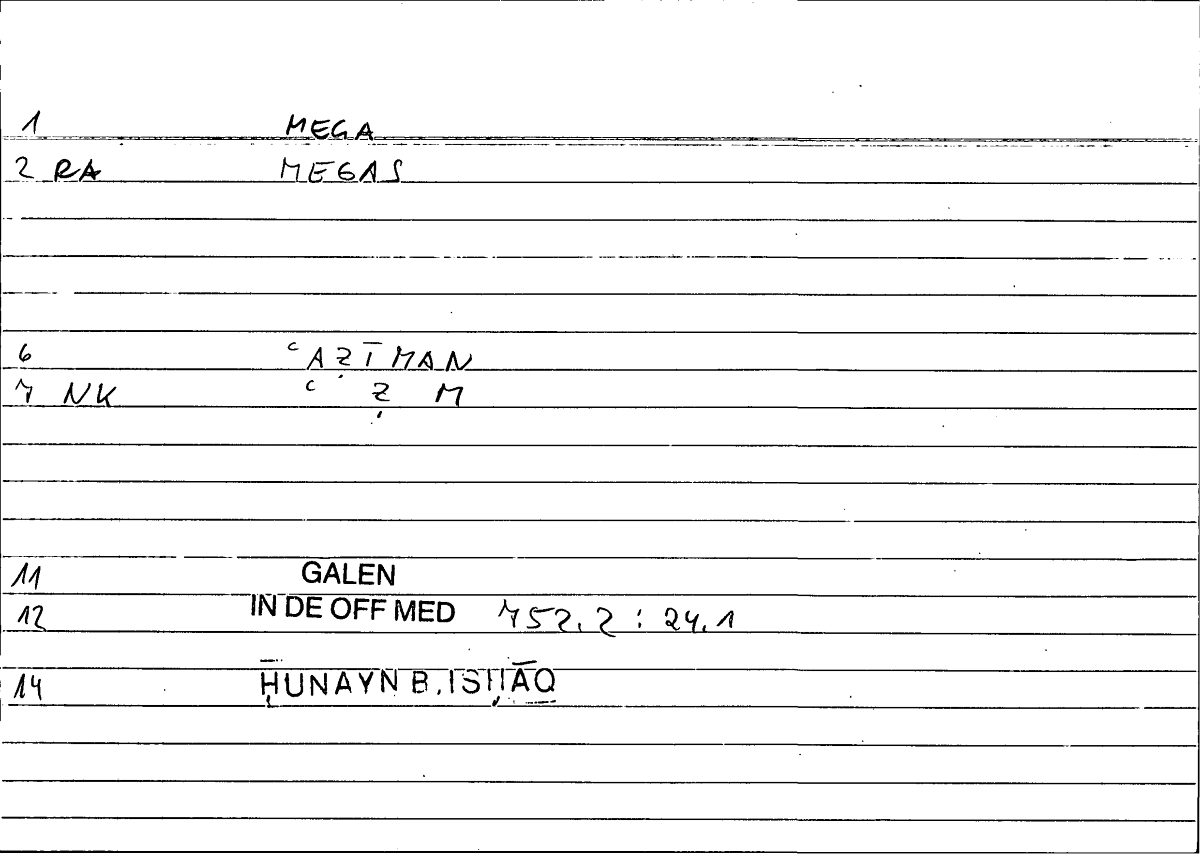 1 MEGA
2 RA MEGAS
6 ʿAẒĪMAN
7 NK ʿ Ẓ M
11 GALEN
12 IN DE OFF MED 752.2 : 24.1
14 ḤUNAYN B. ISḤĀQ